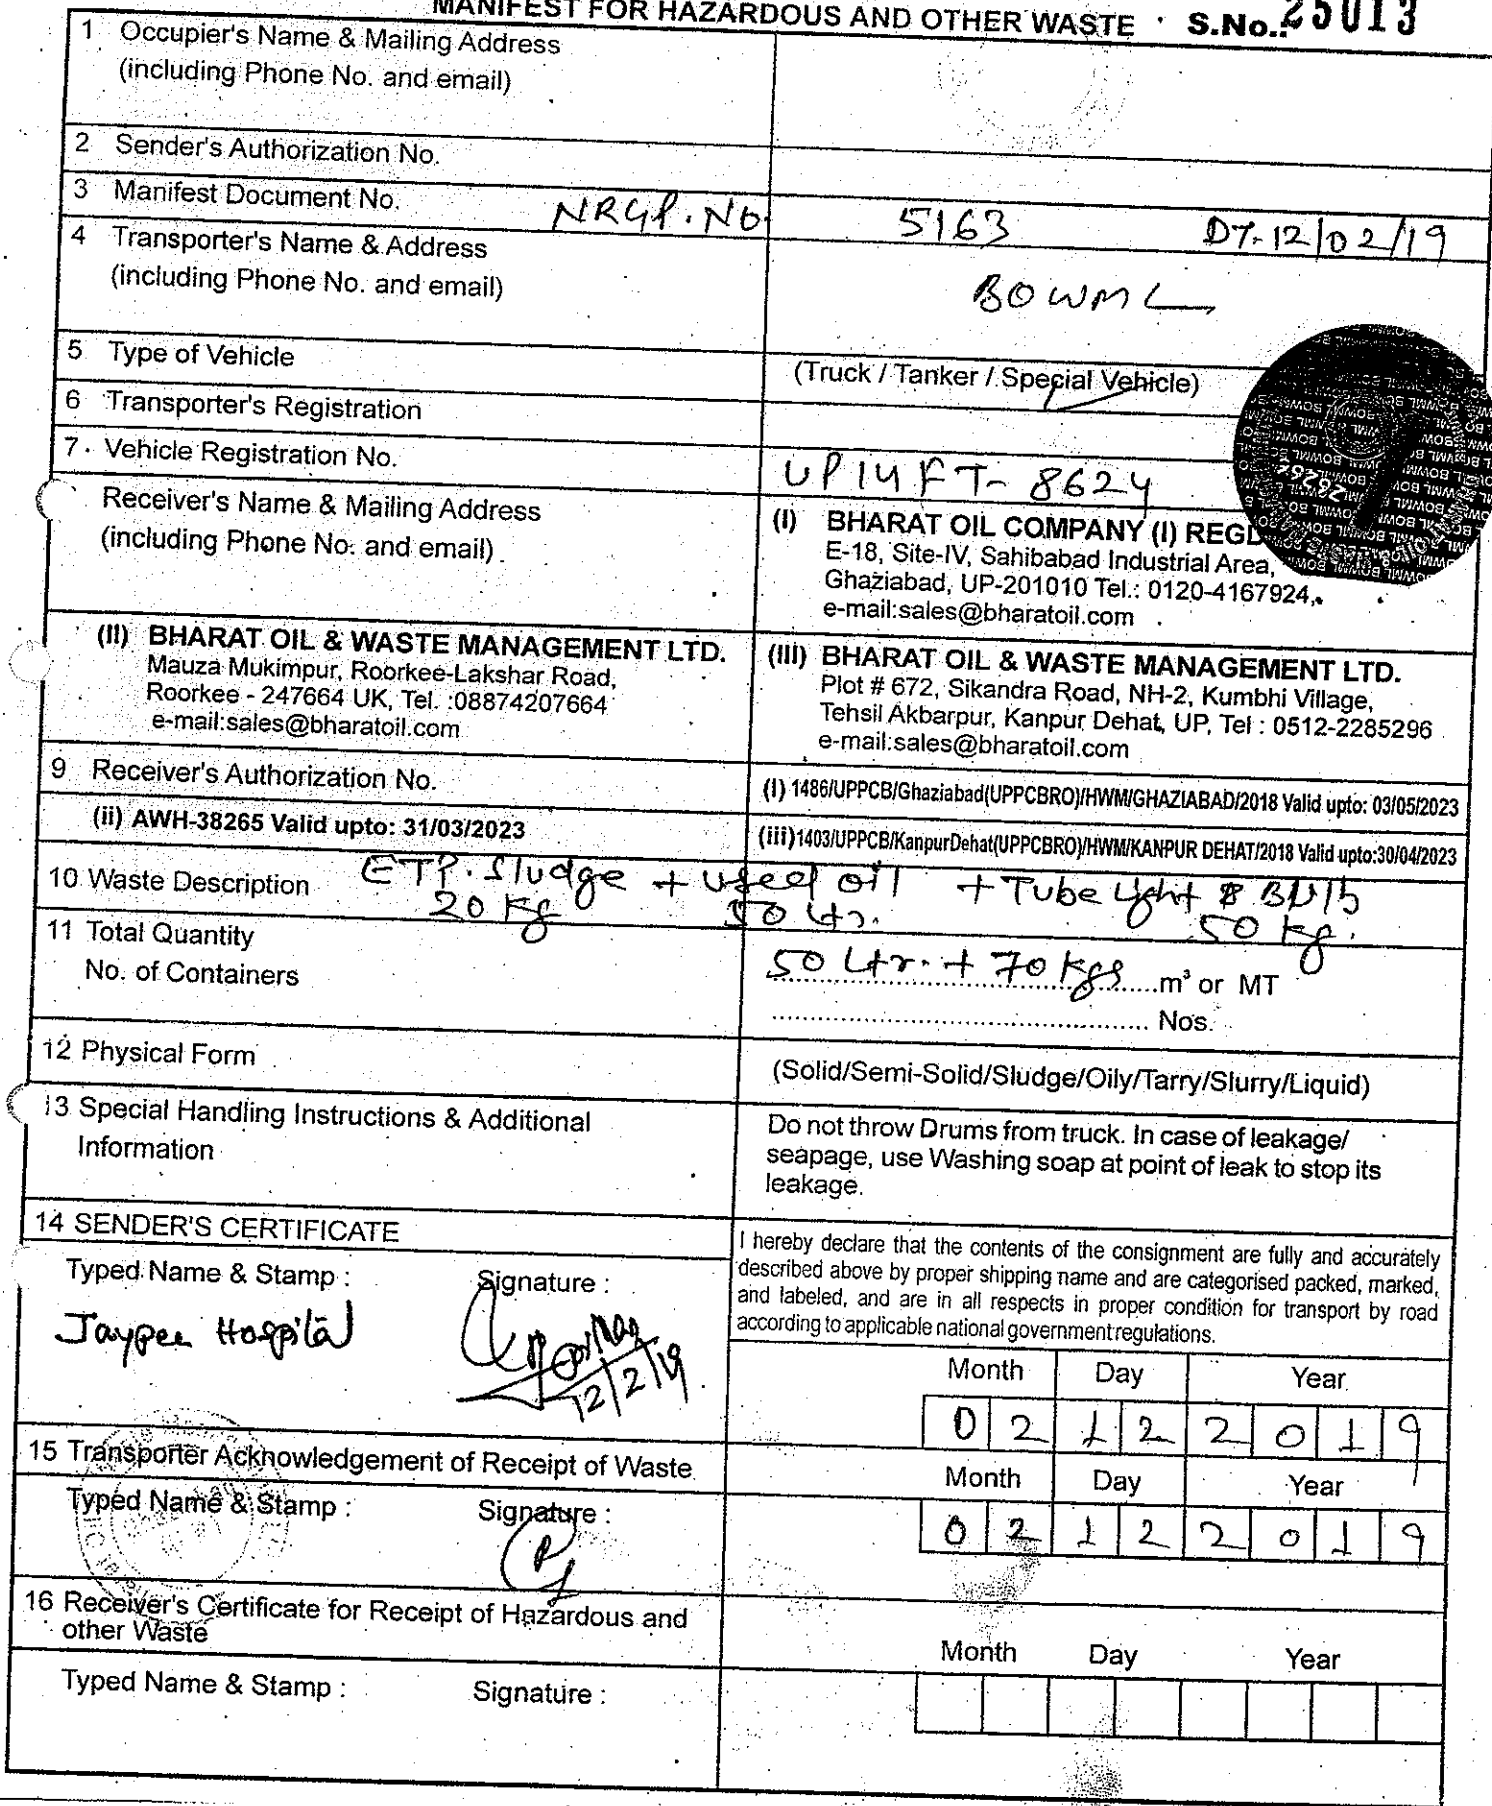 MANIFEST FOR HAZARDOUS AND OTHER WASTE S.No.: 25013
1 Occupier's Name & Mailing Address
(including Phone No. and email)
2 Sender's Authorization No.
3 Manifest Document No. NRGP. No. 5163 DT- 12/02/19
4 Transporter's Name & Address
(including Phone No. and email)
BOWML
5 Type of Vehicle (Truck / Tanker / Special Vehicle)
6 Transporter's Registration
7. Vehicle Registration No. UP14FT-8624
Receiver's Name & Mailing Address
(including Phone No. and email)
(I) BHARAT OIL COMPANY (I) REGD
E-18, Site-IV, Sahibabad Industrial Area,
Ghaziabad, UP-201010 Tel.: 0120-4167924,
e-mail:sales@bharatoil.com
(II) BHARAT OIL & WASTE MANAGEMENT LTD.
Mauza Mukimpur, Roorkee-Lakshar Road,
Roorkee - 247664 UK, Tel. :08874207664
e-mail:sales@bharatoil.com
(III) BHARAT OIL & WASTE MANAGEMENT LTD.
Plot # 672, Sikandra Road, NH-2, Kumbhi Village,
Tehsil Akbarpur, Kanpur Dehat, UP, Tel : 0512-2285296
e-mail:sales@bharatoil.com
9 Receiver's Authorization No. (I) 1486/UPPCB/Ghaziabad(UPPCBRO)/HWM/GHAZIABAD/2018 Valid upto: 03/05/2023
(ii) AWH-38265 Valid upto: 31/03/2023 (iii)1403/UPPCB/KanpurDehat(UPPCBRO)/HWM/KANPUR DEHAT/2018 Valid upto:30/04/2023
10 Waste Description ETP. Sludge + used oil + Tube light & Bulb
20 Kg 50 Ltr. 50 kg.
11 Total Quantity 50 Ltr. + 70 Kgs m³ or MT
No. of Containers Nos.
12 Physical Form (Solid/Semi-Solid/Sludge/Oily/Tarry/Slurry/Liquid)
13 Special Handling Instructions & Additional
Information
Do not throw Drums from truck. In case of leakage/
seapage, use Washing soap at point of leak to stop its
leakage.
14 SENDER'S CERTIFICATE
Typed Name & Stamp : Signature :
Jaypee Hospital
12/2/19
I hereby declare that the contents of the consignment are fully and accurately
described above by proper shipping name and are categorised packed, marked,
and labeled, and are in all respects in proper condition for transport by road
according to applicable national government regulations.
Month Day Year
0 2 1 2 2 0 1 9
15 Transporter Acknowledgement of Receipt of Waste
Typed Name & Stamp : Signature :
Month Day Year
0 2 1 2 2 0 1 9
16 Receiver's Certificate for Receipt of Hazardous and
other Waste
Month Day Year
Typed Name & Stamp : Signature :